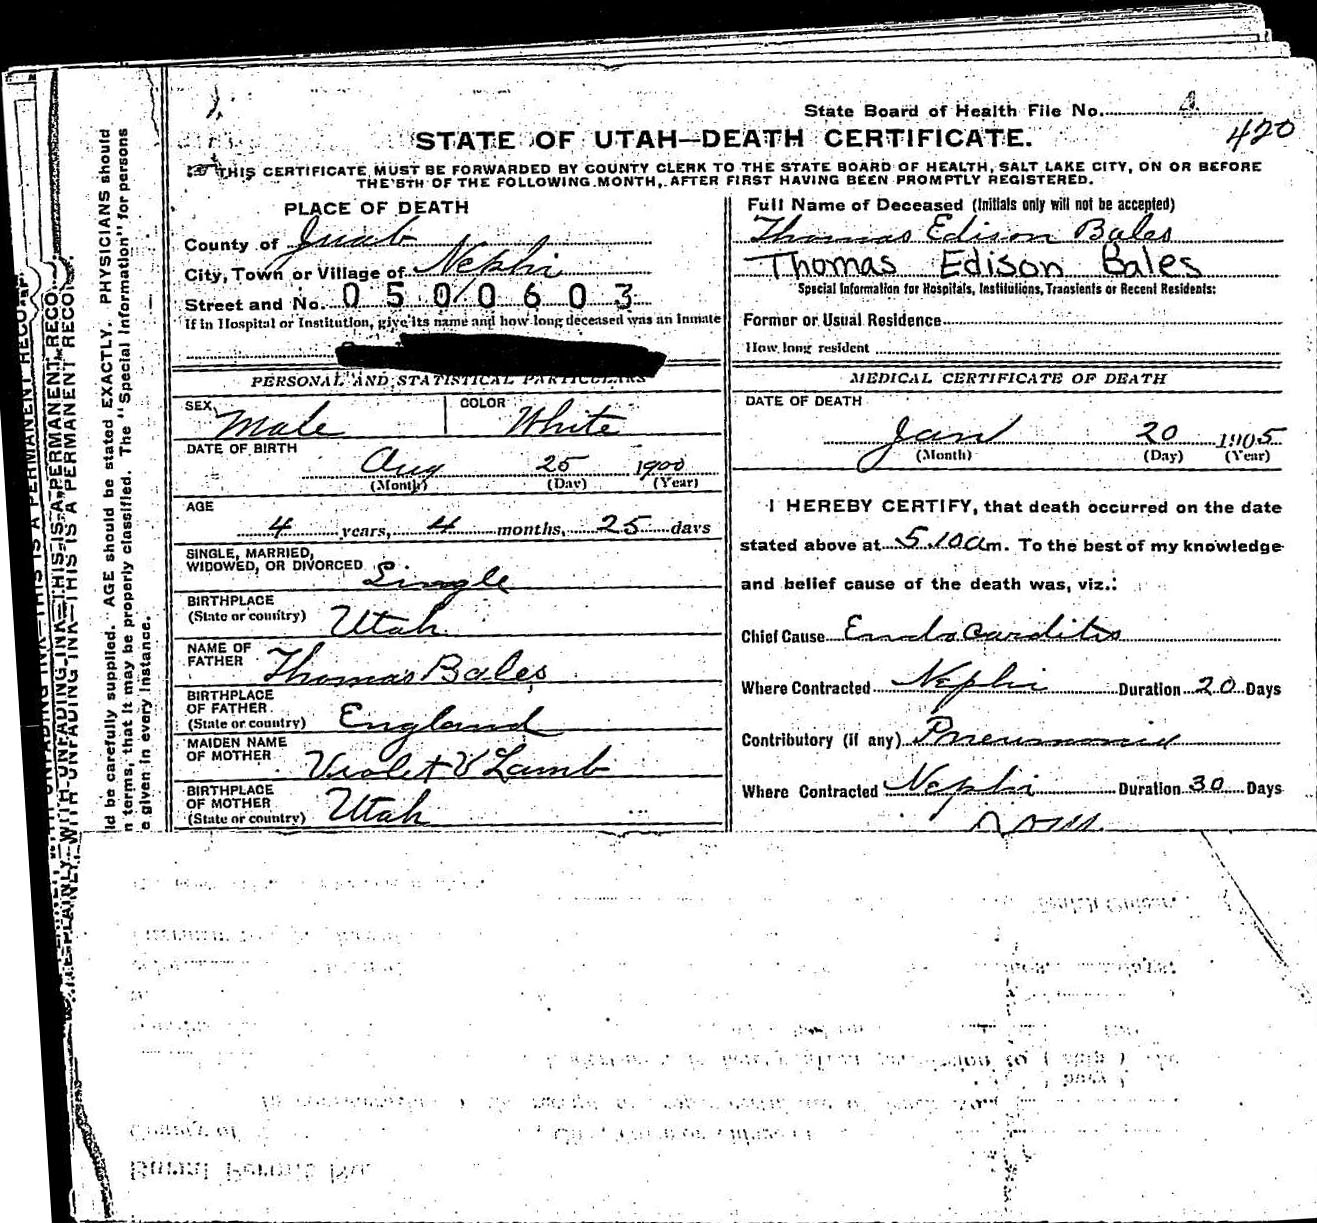 State Board of Health File No.
420
STATE OF UTAH—DEATH CERTIFICATE.
THIS CERTIFICATE MUST BE FORWARDED BY COUNTY CLERK TO THE STATE BOARD OF HEALTH, SALT LAKE CITY, ON OR BEFORE
THE 5TH OF THE FOLLOWING MONTH, AFTER FIRST HAVING BEEN PROMPTLY REGISTERED.
PLACE OF DEATH
County of Juab
City, Town or Village of Nephi
Street and No. 0500603
If in Hospital or Institution, give its name and how long deceased was an inmate
PERSONAL AND STATISTICAL PARTICULARS
SEX Male COLOR White
DATE OF BIRTH
Aug 25 1900
(Month) (Day) (Year)
AGE
4 years, 4 months, 25 days
SINGLE, MARRIED,
WIDOWED, OR DIVORCED Single
BIRTHPLACE
(State or country) Utah
NAME OF
FATHER Thomas Bales
BIRTHPLACE
OF FATHER
(State or country) England
MAIDEN NAME
OF MOTHER Violet V Lamb
BIRTHPLACE
OF MOTHER
(State or country) Utah
Full Name of Deceased (Initials only will not be accepted)
Thomas Edison Bales
Thomas Edison Bales
Special Information for Hospitals, Institutions, Transients or Recent Residents:
Former or Usual Residence
How long resident
MEDICAL CERTIFICATE OF DEATH
DATE OF DEATH
Jan 20 1905
(Month) (Day) (Year)
I HEREBY CERTIFY, that death occurred on the date
stated above at 5.10 a m. To the best of my knowledge
and belief cause of the death was, viz.:
Chief Cause Endocarditis
Where Contracted Nephi Duration 20 Days
Contributory (if any) Pneumonia
Where Contracted Nephi Duration 30 Days
ld be carefully supplied. AGE should be stated EXACTLY. PHYSICIANS should
n terms, that it may be properly classified. The "Special Information" for persons
e given in every instance.
WITH UNFADING INK—THIS IS A PERMANENT RECO
PLAINLY—WITH UNFADING INK—THIS IS A PERMANENT RECO
Burial Permit No.